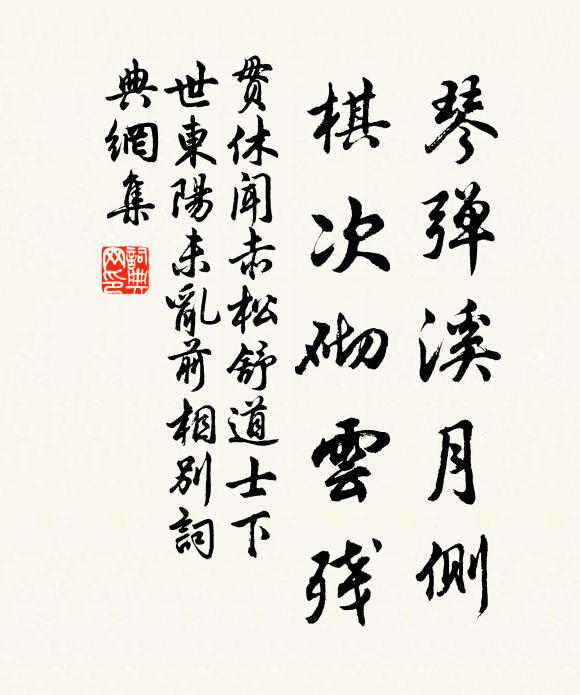 琴弹溪月側
棋次砌雲残
贯休闻赤松舒道士下
世東陽未亂前相别詞
典網集
詞典網印